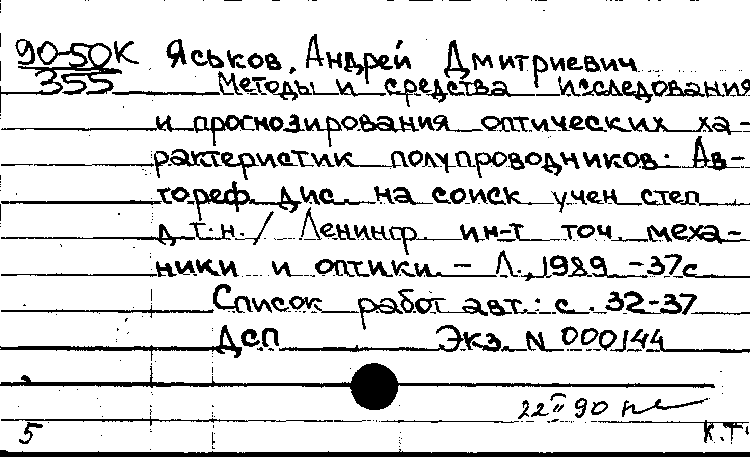 90-50К Яськов, Андрей Дмитриевич
355 Методы и средства исследования
и прогнозирования оптических ха-
рактеристик полупроводников: Ав-
тореф. дис. на соиск учен степ
д.т.н. / Ленингр. ин-т точ. меха-
ники и оптики. - Л., 1989 - 37с
Список работ авт.: с. 32-37
Дсп Экз. N 000144
22 II 90
5 К.Т